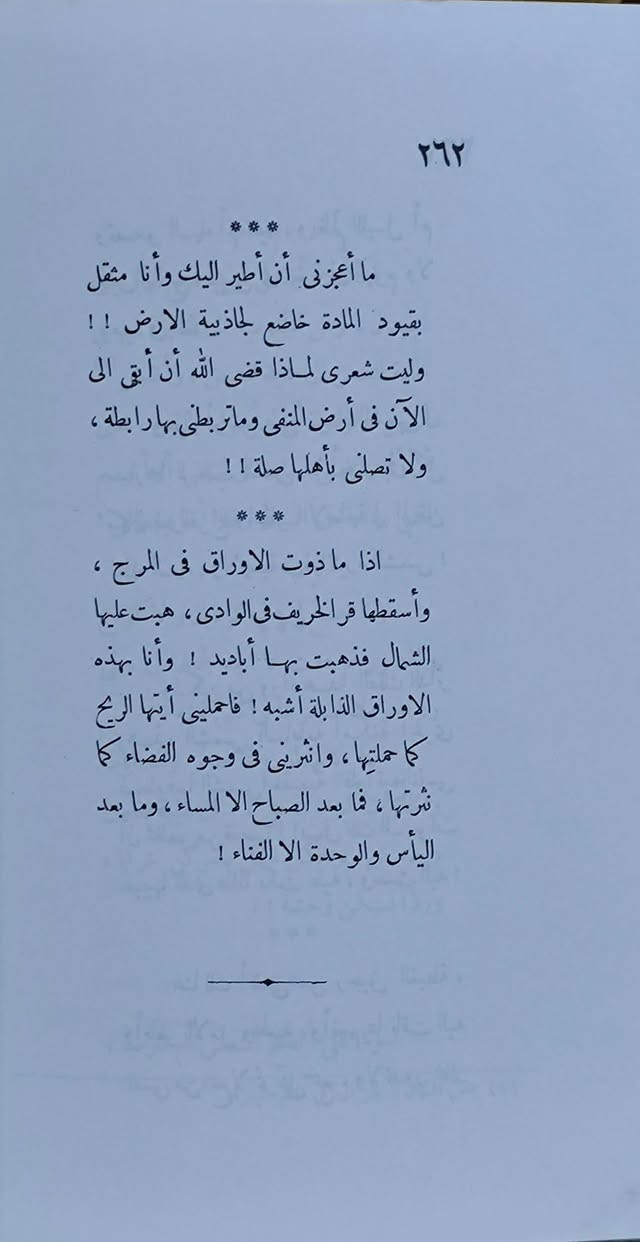 ٢٦٢
***
ما أعجزنى أن أطير اليك وأنا مثقل
بقيود المادة خاضع لجاذبية الارض !!
وليت شعرى لماذا قضى الله أن أبقى الى
الآن فى أرض المنفى وماتربطنى بها رابطة ،
ولا تصلنى بأهلها صلة !!
***
اذا ما ذوت الاوراق فى المرج ،
وأسقطها قر الخريف فى الوادى ، هبت عليها
الشمال فذهبت بها أباديد ! وأنا بهذه
الاوراق الذابلة أشبه ! فاحملينى أيتها الريح
كما حملتِها ، وانثرينى فى وجوه الفضاء كما
نثرتها ، فما بعد الصباح الا المساء ، وما بعد
اليأس والوحدة الا الفناء !